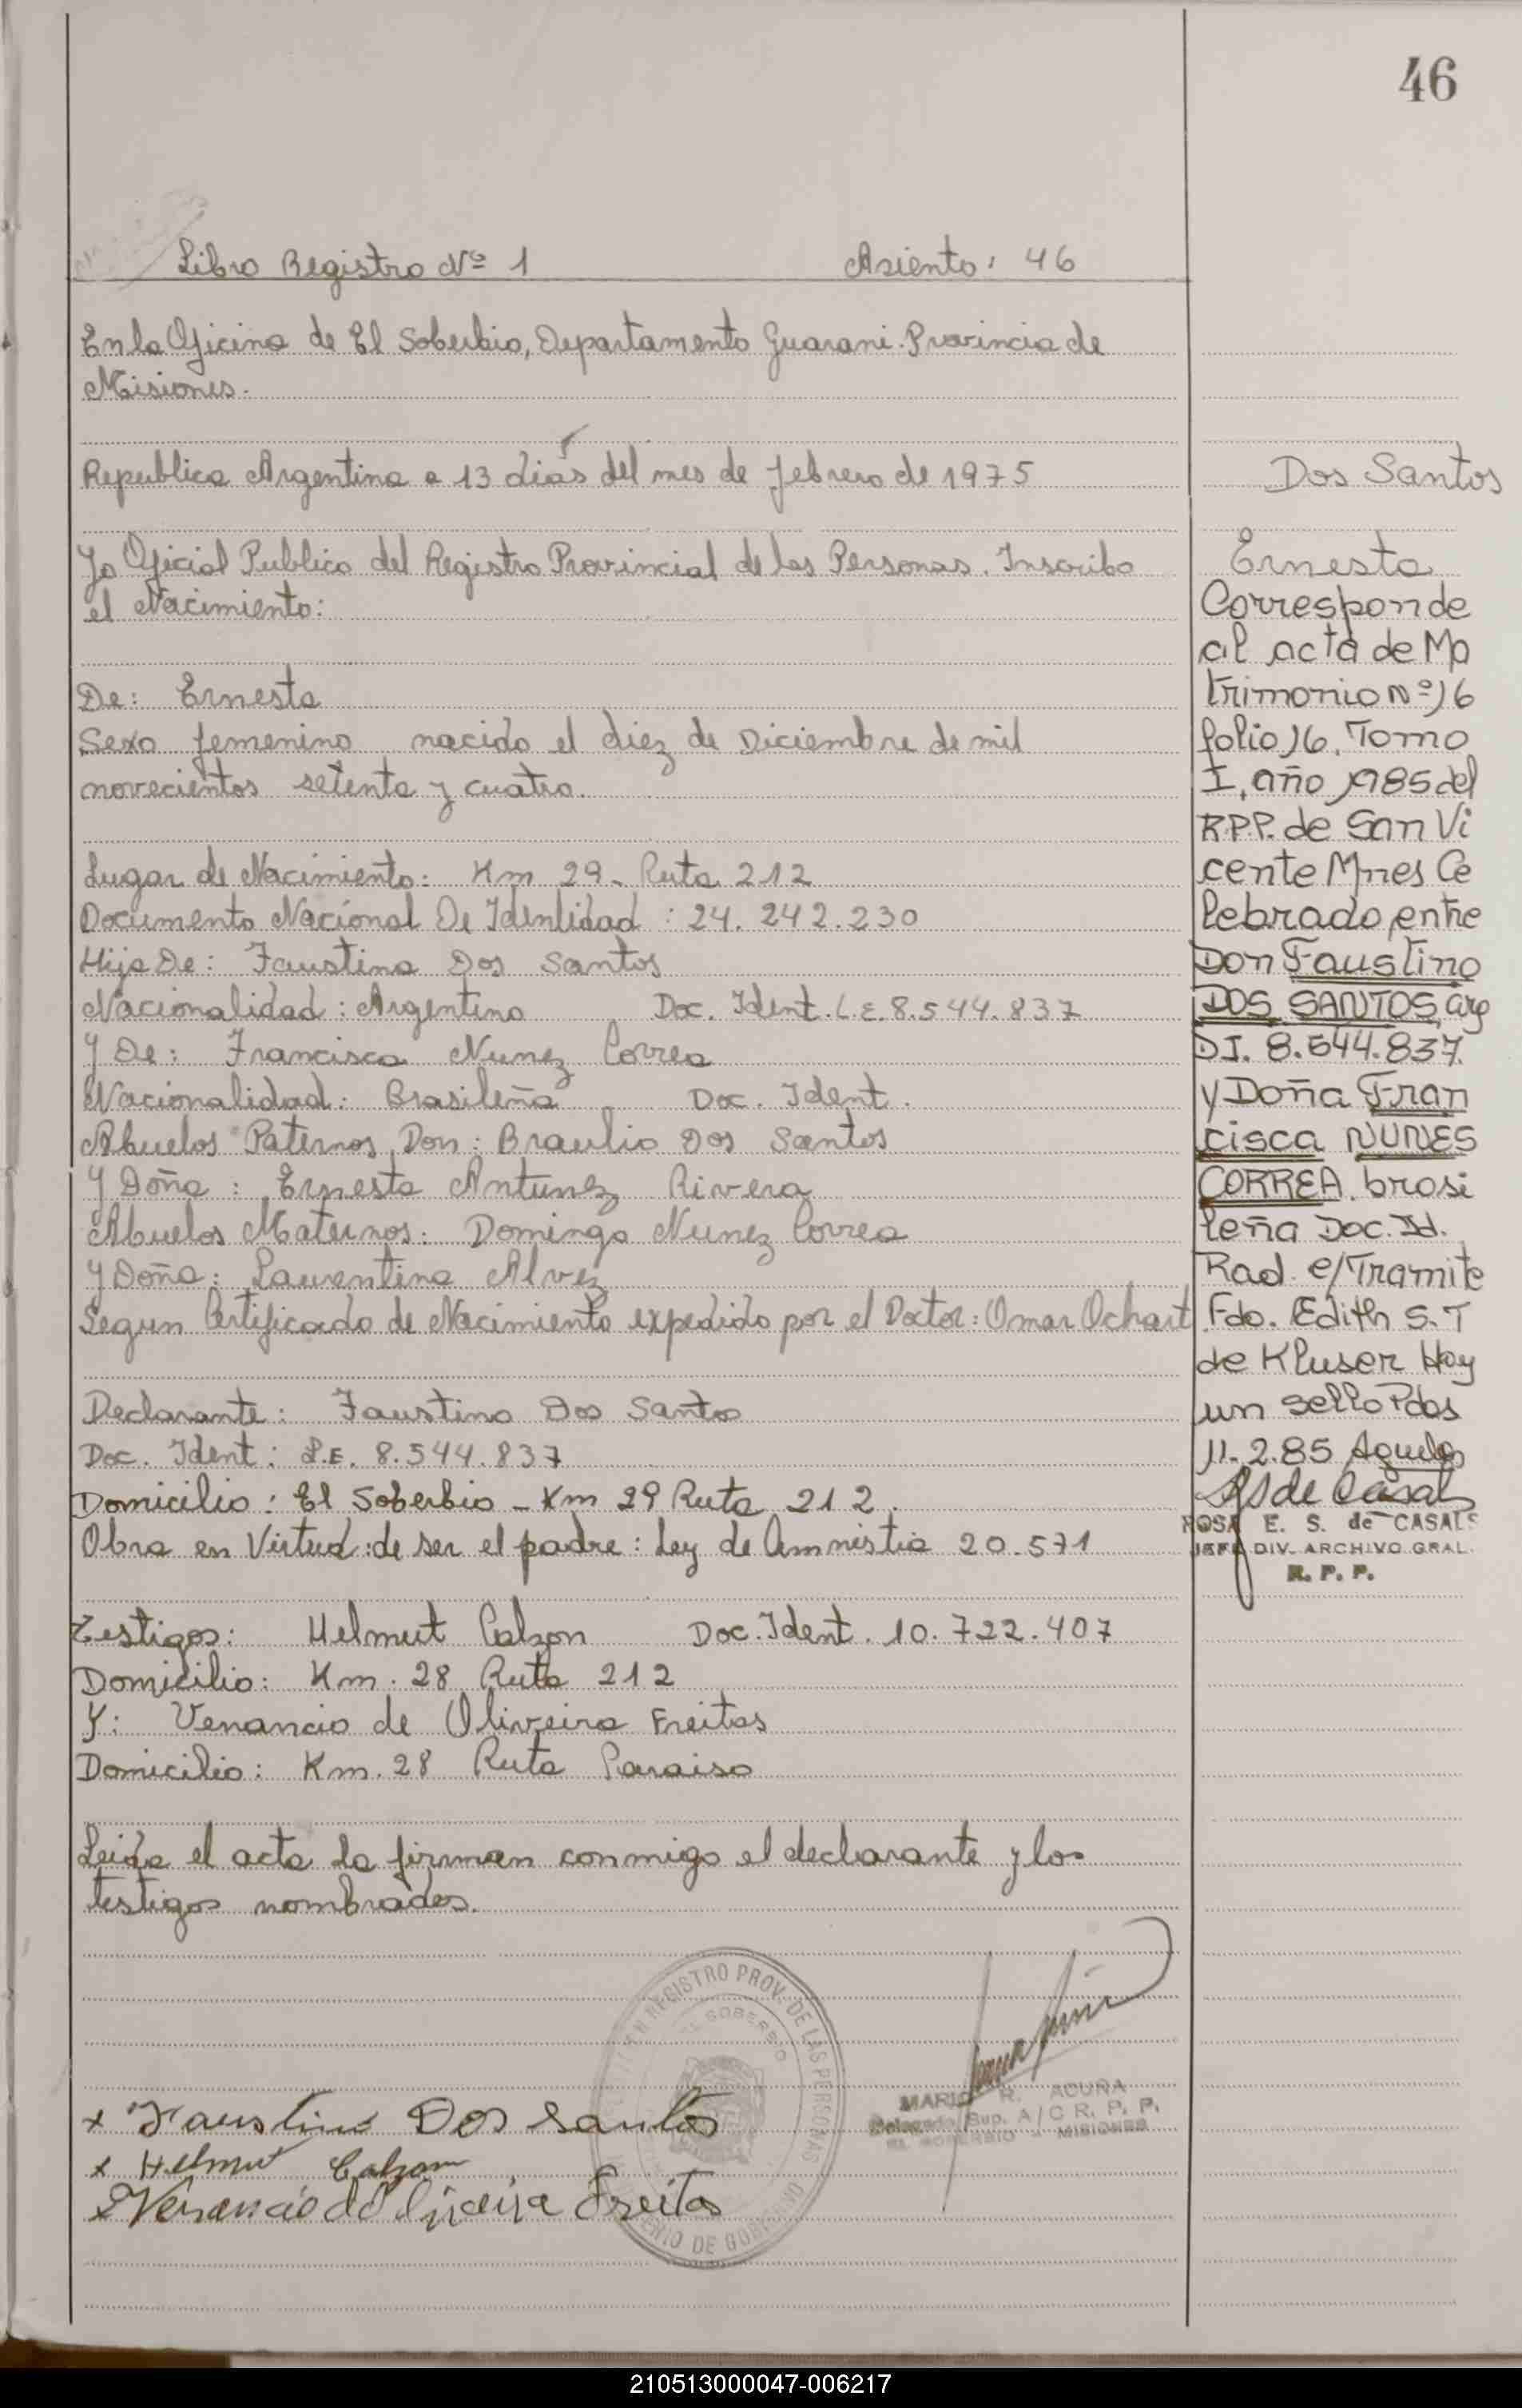 46
Libro Registro Nº 1 Asiento: 46
En la Oficina de El Soberbio, Departamento Guarani. Provincia de
Misiones.
Republica Argentina a 13 dias del mes de febrero de 1975
Yo Oficial Publico del Registro Provincial de las Personas. Inscribo
el Nacimiento:
De: Ernesta
Sexo femenino nacido el diez de Diciembre de mil
novecientos setenta y cuatro.
Lugar de Nacimiento: Km 29 - Ruta 212
Documento Nacional De Identidad : 24.242.230
Hija De: Faustino Dos Santos
Nacionalidad: Argentino Doc. Ident. L.E. 8.544.837
Y De: Francisca Nunez Correa
Nacionalidad: Brasileña Doc. Ident.
Abuelos Paternos Don: Braulio Dos Santos
Y Doña: Ernesta Antunez Rivera
Abuelos Maternos: Domingo Nunez Correa
Y Doña: Laurentina Alvez
Segun Certificado de Nacimiento expedido por el Doctor: Omar Ochart
Declarante: Faustino Dos Santos
Doc. Ident: L.E. 8.544.837
Domicilio: El Soberbio - Km 29 Ruta 212.
Obra en Virtud: de ser el padre: Ley de Amnistia 20.571
Testigos: Helmut Calzon Doc. Ident. 10.722.407
Domicilio: Km. 28 Ruta 212
Y: Venancio de Oliveira Freitas
Domicilio: Km. 28 Ruta Paraiso
Leida el acta la firman conmigo el declarante y los
testigos nombrados.
x Faustino Dos Santos
x Helmut Calzon
x Venancio de Oliveira Freitas
REGISTRO PROV. DE LAS PERSONAS
EL SOBERBIO
MARIO R. ACUÑA
Delegado Sup. A/C R. P. P.
EL SOBERBIO - MISIONES
Dos Santos
Ernesta
Corresponde
al acta de Ma
trimonio Nº 16
folio 16, Tomo
I, año 1985 del
R.P.P. de San Vi
cente Mnes Ce
lebrado entre
Don Faustino
DOS SANTOS, arg
DI. 8.544.837.
y Doña Fran
cisca NUNES
CORREA. brasi
leña Doc. Id.
Rad. e/Tramite
Fdo. Edith S. T
de Kluser Hay
un sello Pdas
11.2.85
ROSA E. S. de CASALS
JEFE DIV. ARCHIVO GRAL.
R. P. P.
210513000047-006217